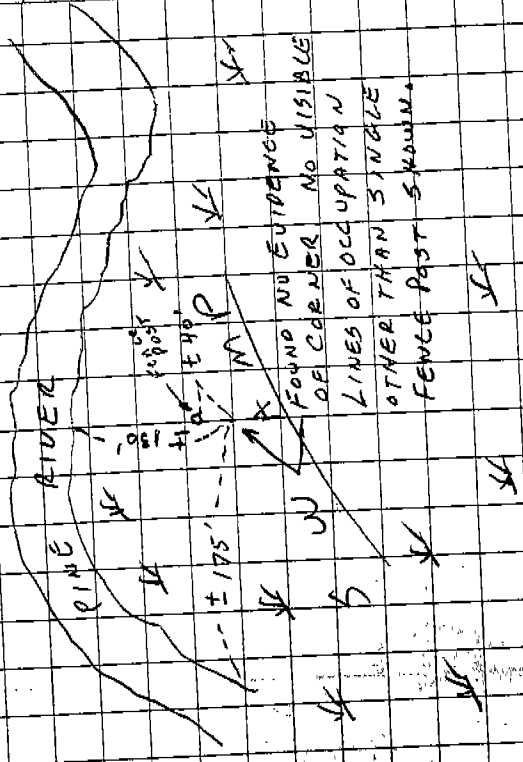 PINE RIVER
± 130'
FENCE
POST
± 40'
± 175'
SWAMP
FOUND NO EVIDENCE
OF CORNER NO VISIBLE
LINES OF OCCUPATION
OTHER THAN SINGLE
FENCE POST SHOWN.